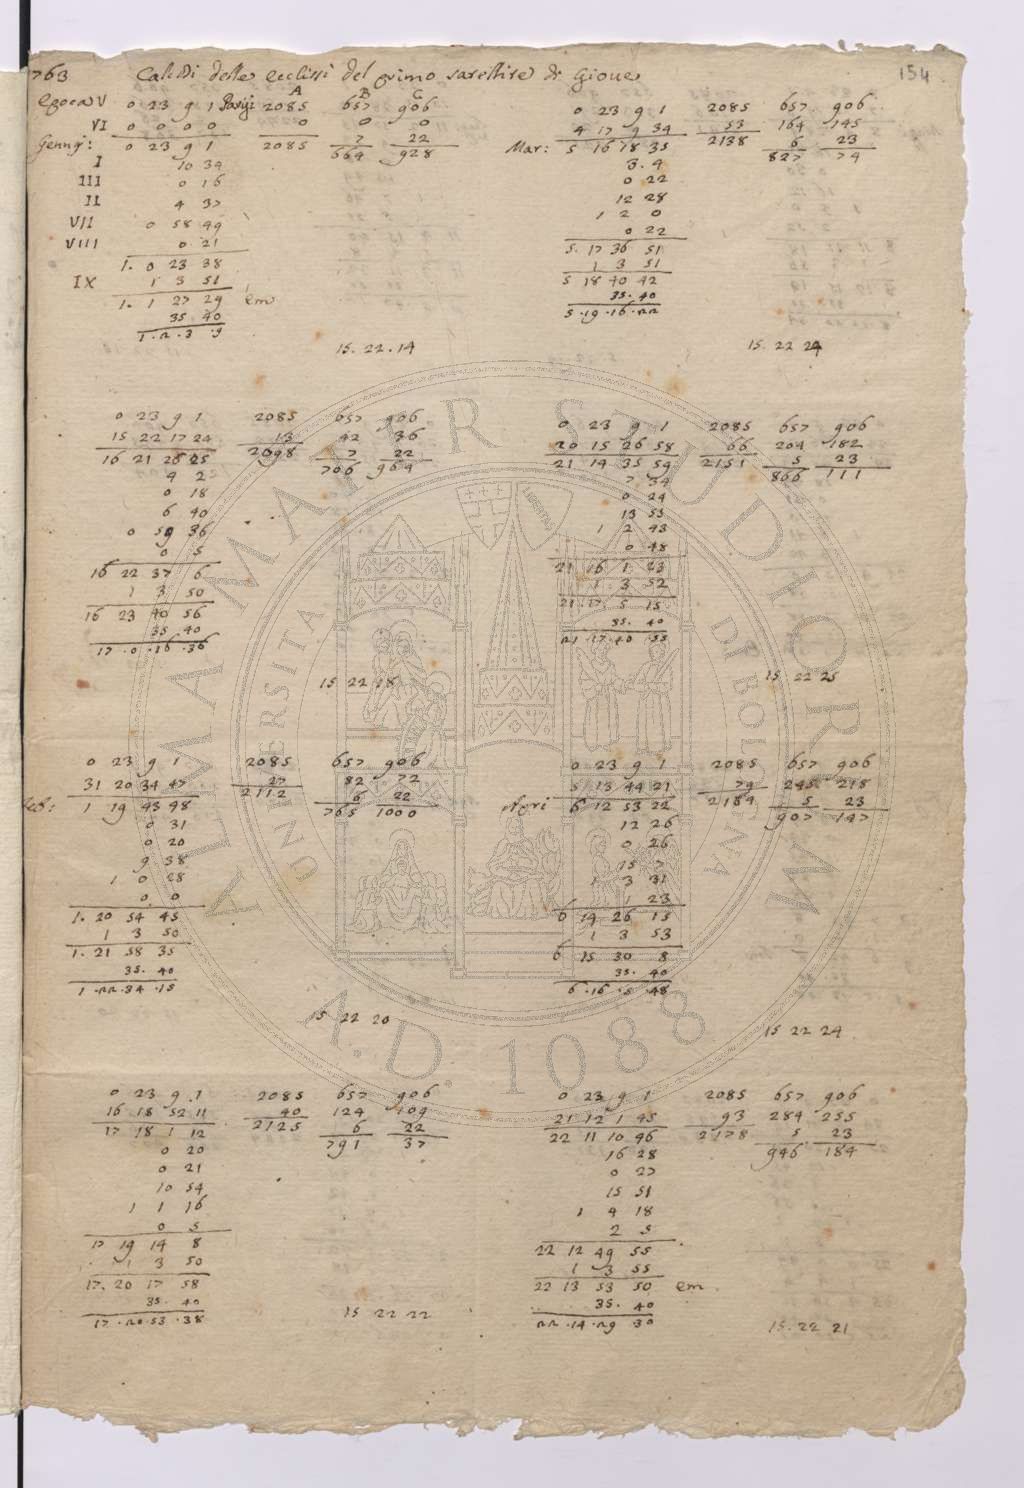 1763 Calcoli delle ecclissi del primo satellite di Giove 154
A B C
epoca V 0 23 9 1 Parigi 2085 657 906
VI 0 0 0 0 0 0 0
Genn: 0 23 9 1 2085 7 22
664 928
I 10 34
III 0 16
II 4 37
VII 0 58 49
VIII 0 21
1. 0 23 38
IX 1 3 51
1. 1 27 29 em
35 40
1.2.3.9
15.22.14
0 23 9 1 2085 657 906
4 17 9 34 53 164 145
Mar: 5 16 18 35 2138 6 23
827 74
3.4
0 22
12 28
1 2 0
0 22
5.17 36 51
1 3 51
5 18 40 42
35.40
5.19.16.22
15.22 24
0 23 9 1 2085 657 906
15 22 17 24 13 42 36
16 21 26 25 2098 7 22
706 964
4 2
0 18
6 40
0 59 36
0 5
16 22 37 6
1 3 50
16 23 40 56
35 40
17.0.16.36
15 22 18
0 23 9 1 2085 657 906
20 15 26 58 66 204 182
21 14 35 59 2151 5 23
866 111
7 34
0 24
13 53
1 2 43
0 48
21 16 1 23
1 3 52
21.17.5 15
35.40
21.17.40.55
15 22 25
0 23 9 1 2085 657 906
31 20 34 47 27 82 72
Feb: 1 19 43 48 2112 6 22
765 1000
0 31
0 20
9 38
1 0 28
0 0
1.20 54 45
1 3 50
1.21 58 35
35.40
1.22.34.15
15 22 20
0 23 9 1 2085 657 906
5 13 44 21 79 245 218
Apri 6 12 53 22 2164 5 23
907 147
12 26
0 26
15 7
1 3 31
1 23
6 14 26 15
1 3 53
6 15 30 8
35.40
6.16.5.48
15 22 24
0 23 9 1 2085 657 906
16 18 52 11 40 124 109
17 18 1 12 2125 6 22
791 37
0 20
0 21
10 54
1 1 16
0 5
17 19 14 8
1 3 50
17.20 17 58
35.40
17.20.53.38
15 22 22
0 23 9 1 2085 657 906
21 12 1 45 93 284 255
22 11 10 46 2178 5 23
946 184
16 28
0 27
15 51
1 4 18
2 5
22 12 49 55
1 3 55
22 13 53 50 em
35.40
22.14.29 30
15.22 21
ALMA MATER STUDIORUM
UNIVERSITÀ DI BOLOGNA
A.D. 1088